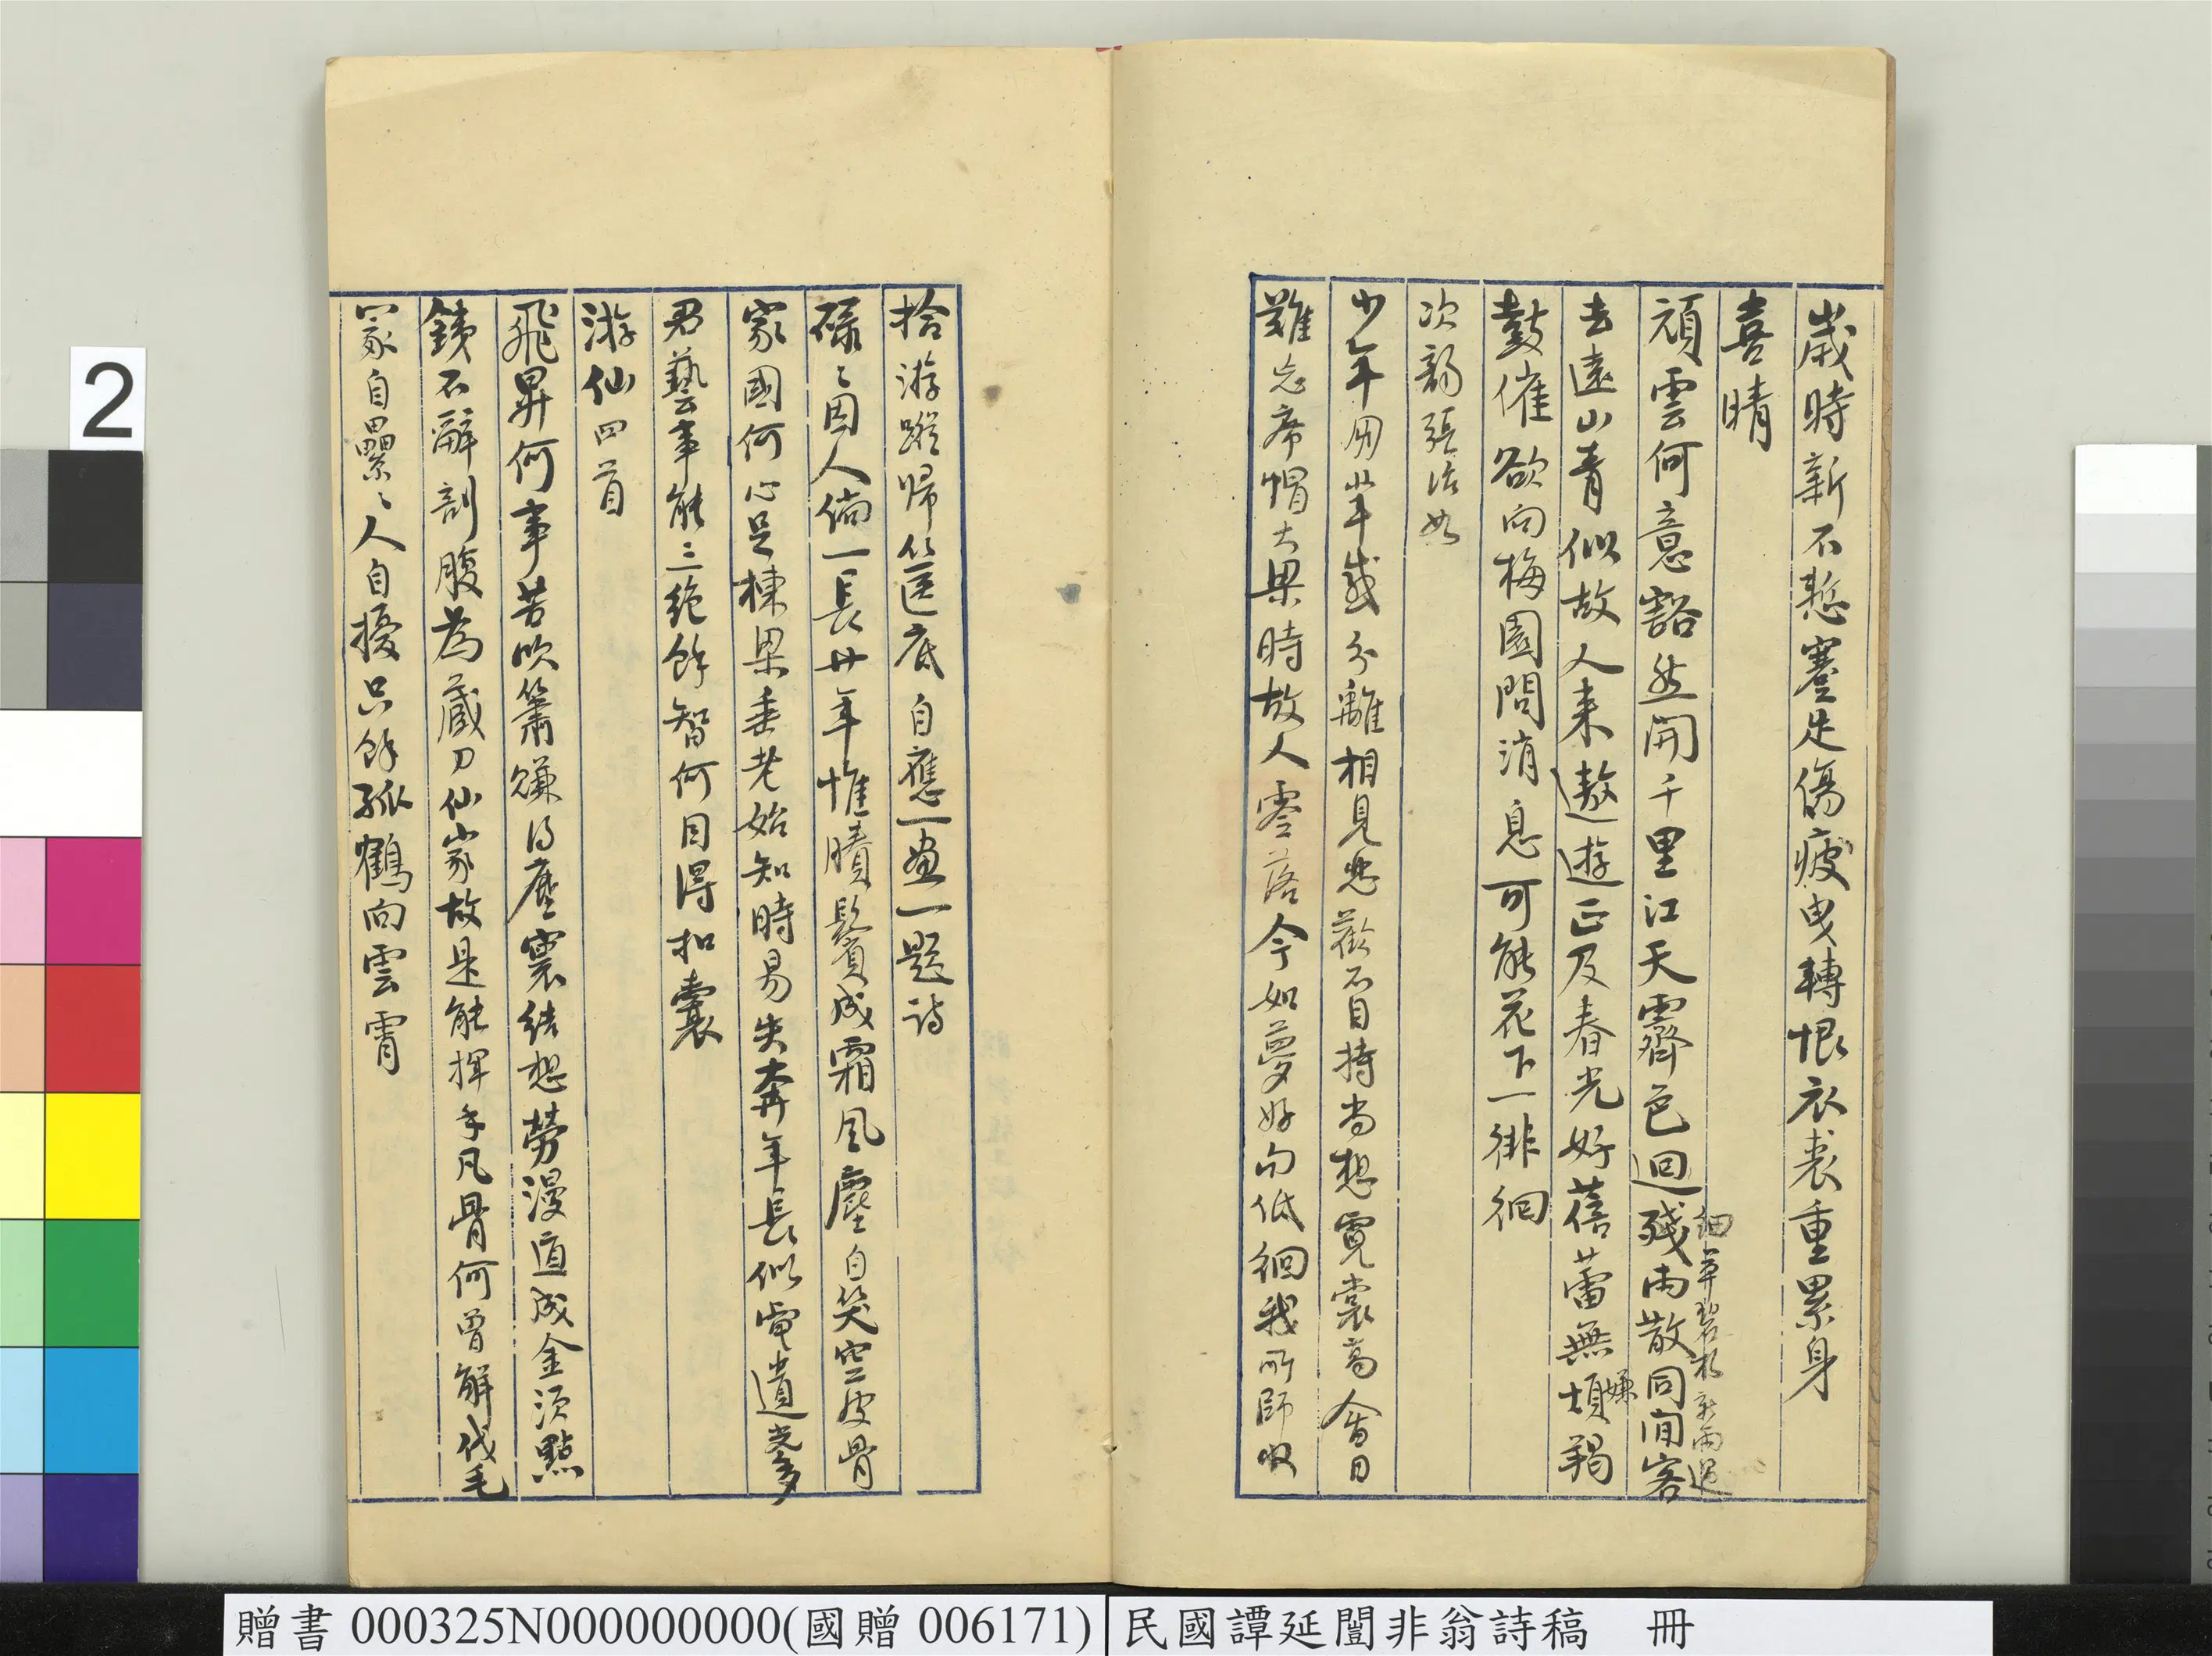 歲時新不愁蹇足傷疲曳轉恨衣裘重累身
喜晴
頑雲何意豁然開千里江天霽色回殘雨散同閒客
細草碧於新雨過
去遠山青似故人來遨遊正及春光好蓓蕾無煩羯
嫌
鼓催欲向梅園問消息可能花下一徘徊
次韵張治如
少年朋輩感分離相見悲歡不自持尚想霓裳高會日
難忘席帽大梁時故人零落今如夢好句低徊我所師收
拾游蹤歸篋底自應一畫一題詩
碌〻因人倘一長廿年惟賸鬢成霜風塵自笑空皮骨
家國何心足棟梁垂老始知時易失奔年長似電遺光多
君藝事能三絕餘智何因得扣囊
游仙四首
飛昇何事苦吹簫赚得塵寰結想勞漫道成金須點
鐵不辭剖腹為藏刀仙家故是能揮手凡骨何曾解伐毛
冢自纍〻人自擾只餘孤鶴向雲霄
2
贈書 000325N000000000(國贈 006171)
民國譚延闓非翁詩稿 冊